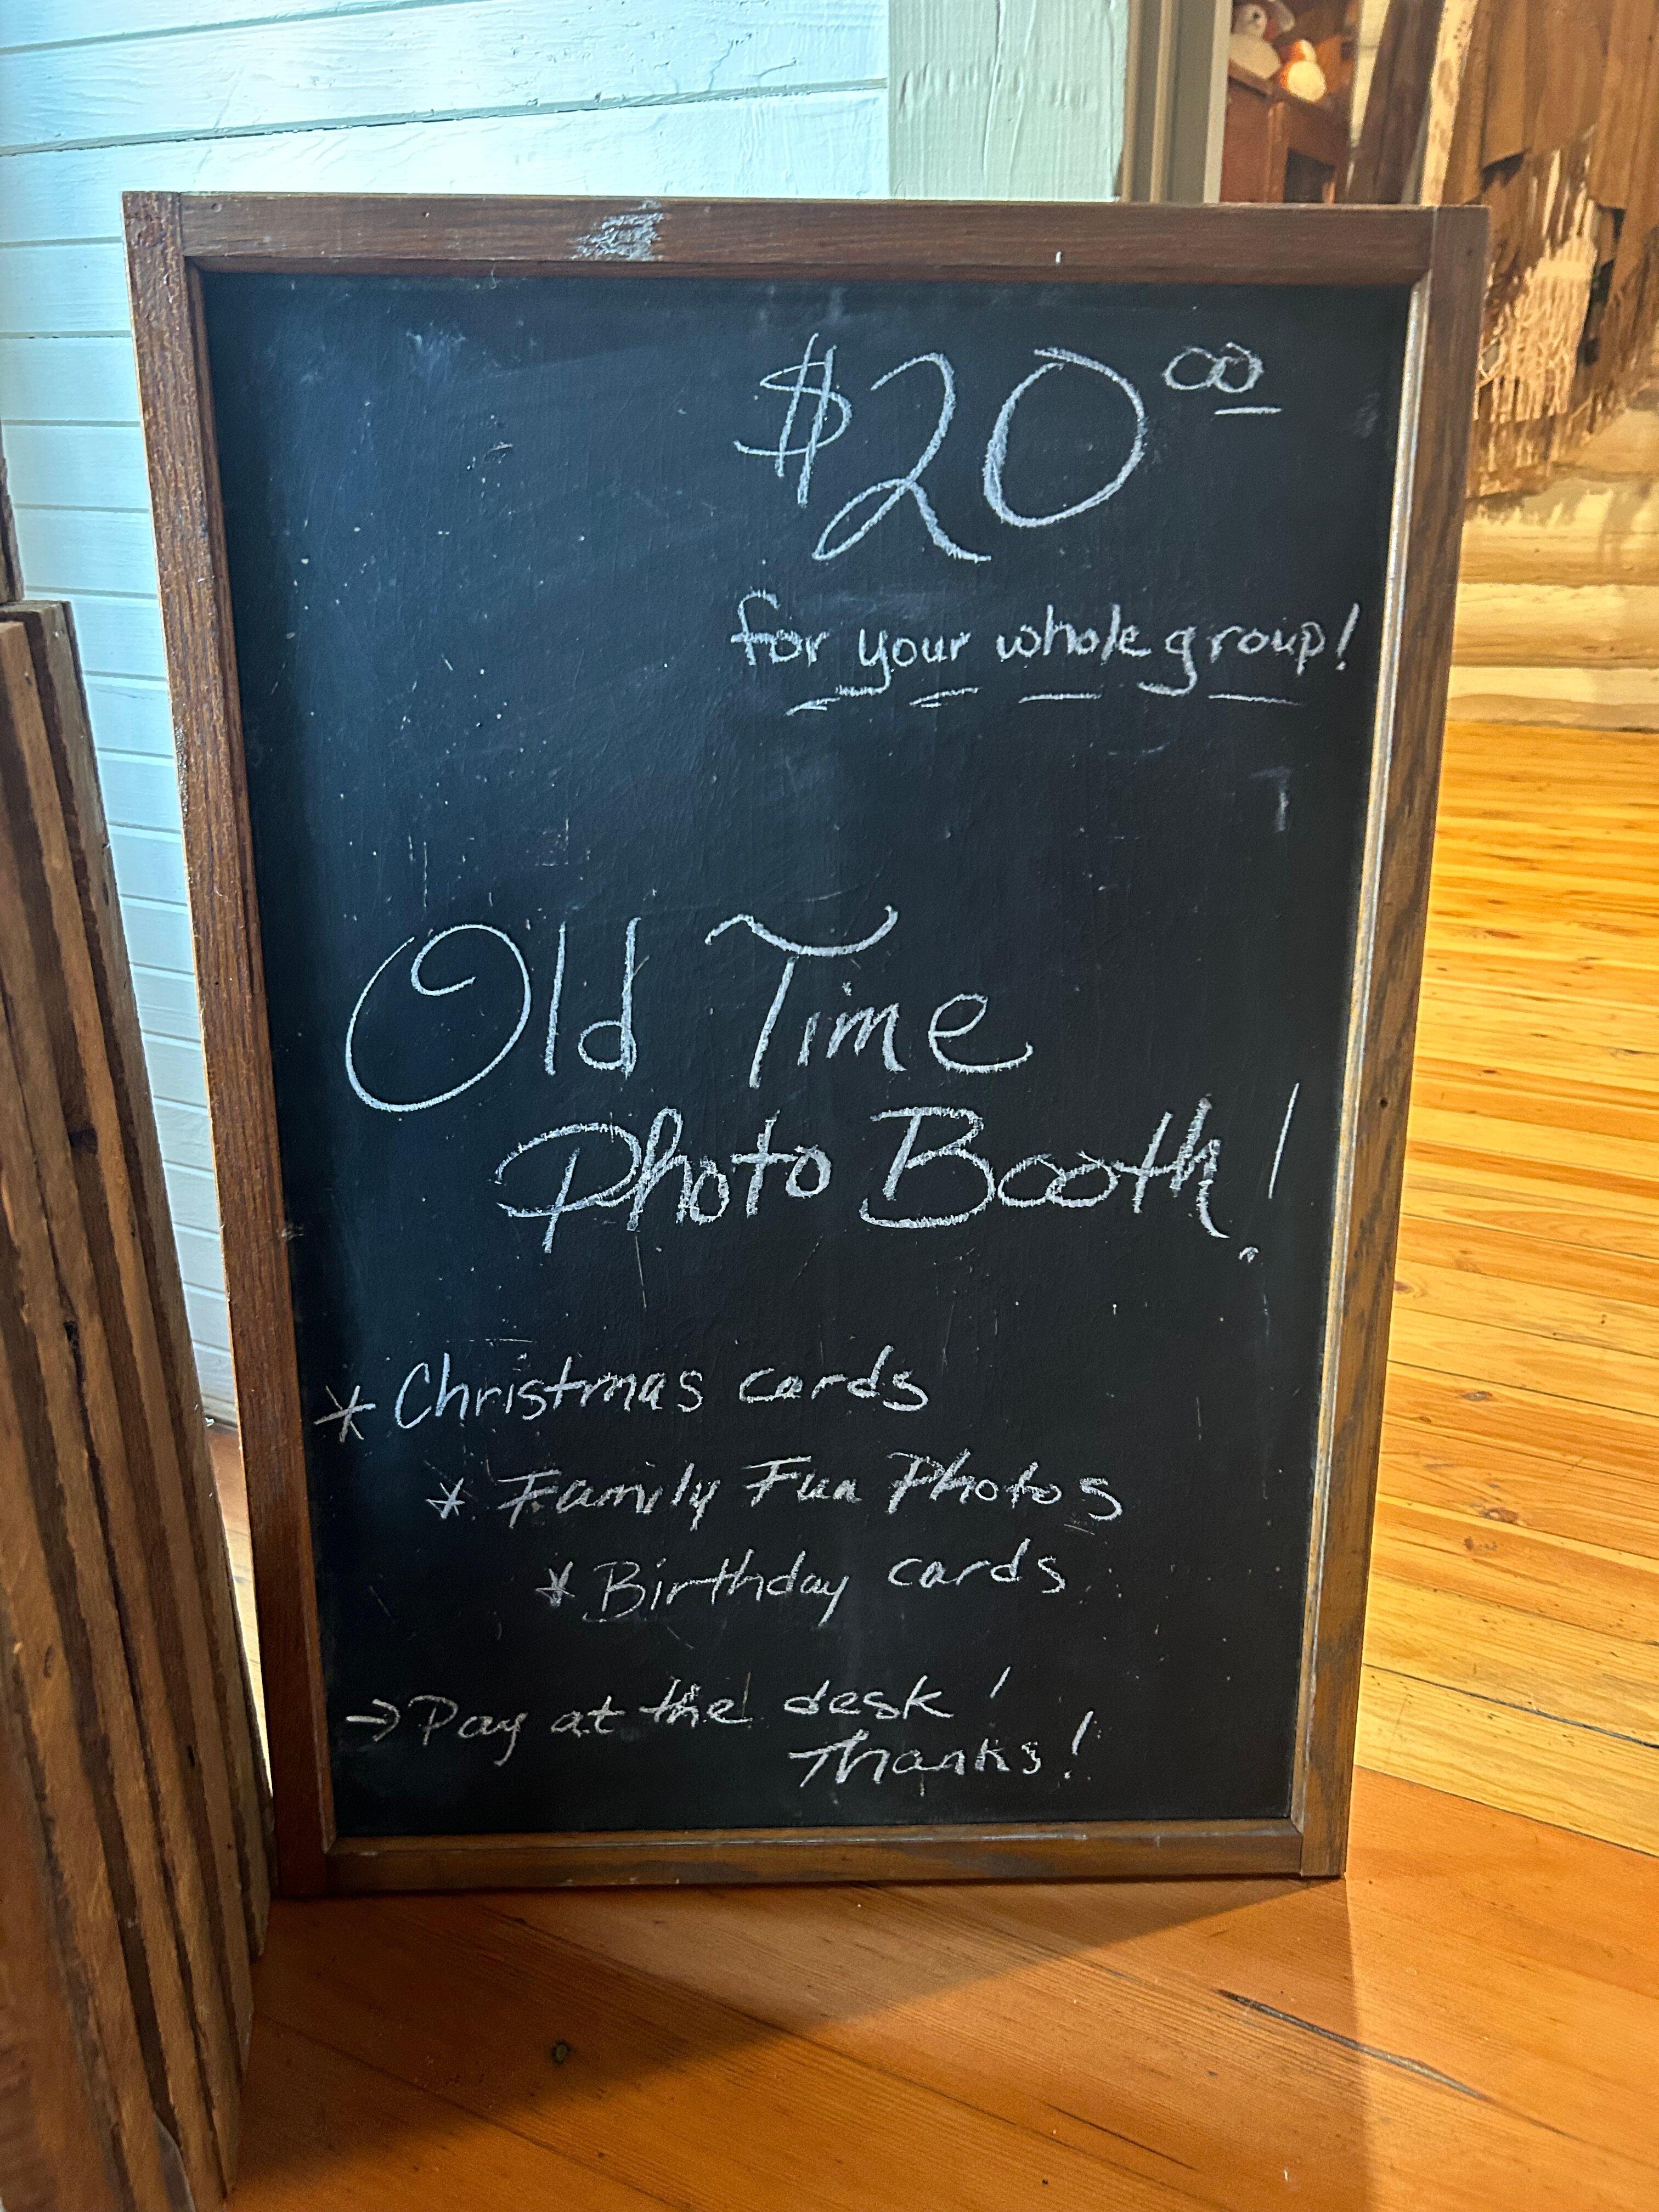 $20.00
for your whole group!
Old Time
Photo Booth!
* Christmas cards
* Family Fun Photos
* Birthday cards
→ Pay at the desk!
Thanks!